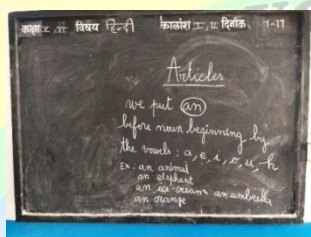 कक्षा V, VI विषय हिन्दी कालांश I, II दिनांक 7-17
Articles
we put an
before noun beginning by
the vowels: a, e, i, o, u, h
Ex. an animal
an elephant
an ice-cream an umbrella
an orange